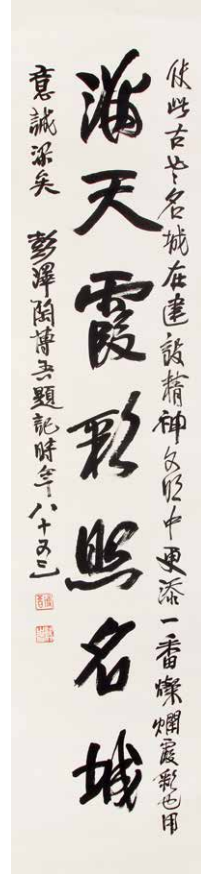 使此古老名城在建設精神文明中更添一番燦爛霞彩也用
滿天霞彩照名城
意誠深矣 彭澤陶博吾題記時年八十又三